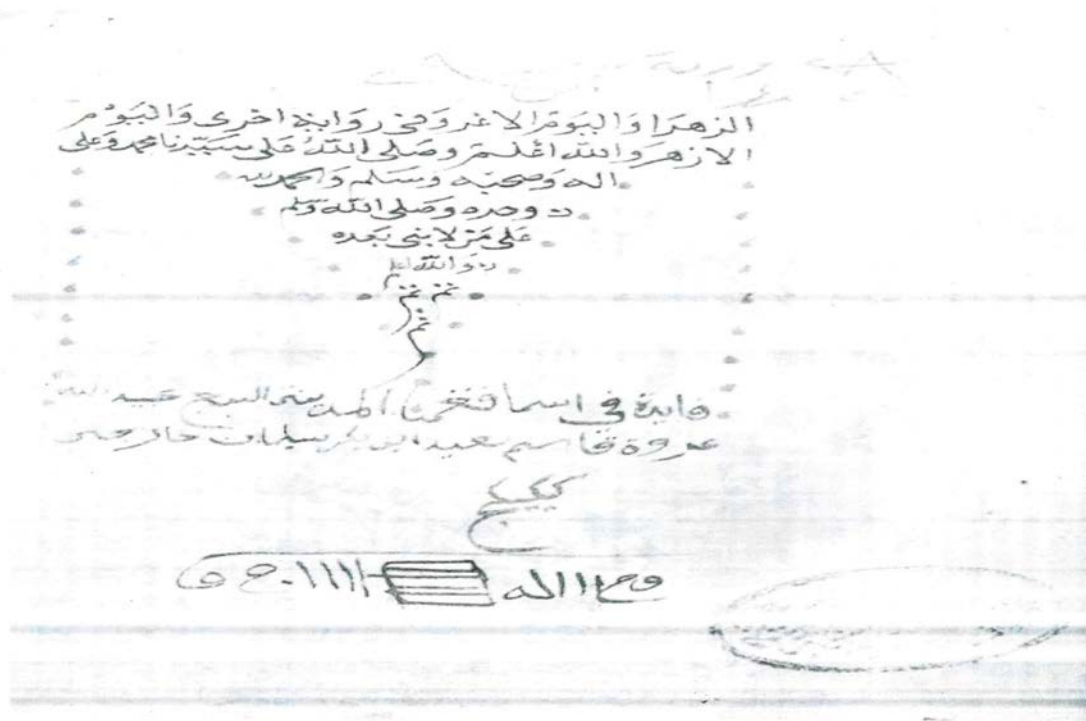 الزهرا واليوم الاغر وفي رواية اخرى واليوم
الازهر والله اعلم وصلى الله على سيدنا محمد وعلى
اله وصحبه وسلم والحمد لله
وحده وصلى الله وسلم
على من لا نبي بعده
والله اعلم
تم تم
تم
فايدة في اسما فقها المدينه السبع عبيد الله
عروة قاسم سعيد ابو بكر سليمان خارجه